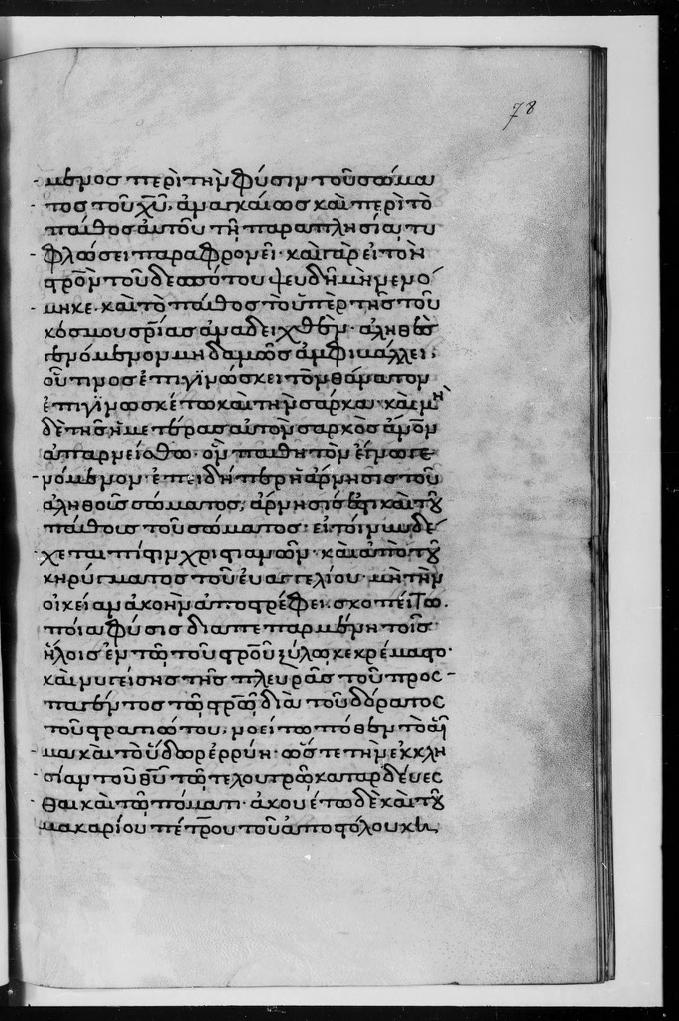 78
μενος περὶ τὴν φύσιν τοῦ σώμα
τος τοῦ χυ, ἀναγκαίως καὶ περὶ τὸ
πάθος αὐτοῦ τῇ παραπλησία τυ
φλώσει παραφρονεῖ· καὶ γὰρ εἰ τὸν
στρον τοῦ δεσπότου ψευδῆ μὴ νενό
μηκε· καὶ τὸ πάθος τὸ ὑπὲρ τῆς τοῦ
κόσμου σρίας ἀναδειχθὲν· ἀληθὲς
γενόμενον μηδαμῶς ἀμφιβάλλει·
οὗτινος ἐπιγϊνώσκει τὸν θάνατον
ἐπιγϊνωσκέτω καὶ τὴν σάρκα· καὶ μὴ
δὲ τῆς ἡμετέρας αὐτὸν σαρκὸς ἄνον
ἀπαρνείσθω· ὃν παθητὸν ἔγνω γε
νόμενον· ἐπειδήπερ ἡ ἄρνησις τοῦ
ἀληθοῦς σώματος, ἄρνησίς ἐστι καὶ τοῦ
πάθους τοῦ σώματος· εἰ τοίνυν δέ
χεται πίστιν χριστιανῶν· καὶ ἀπὸ τοῦ
κηρύγματος τοῦ εὐαγγελίου· μὴ τὴν
οἰκείαν ἀκοὴν ἀποστρέφει. σκοπείτω.
ποία φύσις διαπεπαρμένη τοῖς
ἥλοις ἐν τῷ τοῦ στροῦ ξύλῳ κεκρέμαστο·
καὶ νυγείσης τῆς πλευρᾶς τοῦ προσ
παγέντος τῷ στρῷ διὰ τοῦ δόρατος
τοῦ στρατιώτου, νοείτω πόθεν τὸ αἷ
μα καὶ τὸ ὕδωρ ἐρρύη· ὥστε τὴν ἐκκλη
σίαν τοῦ θυ τῷ τε λουτρῷ καταρδεύεσ
θαι καὶ τῷ πόματι· ἀκουέτω δὲ καὶ τοῦ
μακαρίου πέτρου τοῦ ἀποστόλου κη